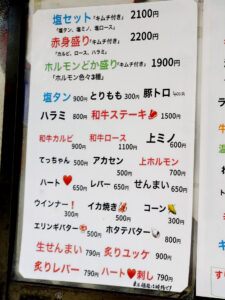 塩セット「キムチ付き」2100円
「塩タン、塩ミノ、塩ロース」
赤身盛り「キムチ付き」2200円
「カルビ、ロース、ハラミ」
ホルモンどか盛り「キムチ付き」1900円
「ホルモン色々3種」
塩タン 900円 とりもも 300円 豚トロ
ハラミ 800円 和牛ステーキ 1500円
和牛カルビ 900円 和牛ロース 1100円 上ミノ 600円
てっちゃん 500円 アカセン 500円 上ホルモン 700円
ハート❤ 650円 レバー 650円 せんまい 650円
ウインナー! 300円 イカ焼き 500円 コーン 300円
エリンギバター 500円 ホタテバター 800円
生せんまい 790円 炙りユッケ 900円
炙りレバー 790円 ハート❤刺し 790円